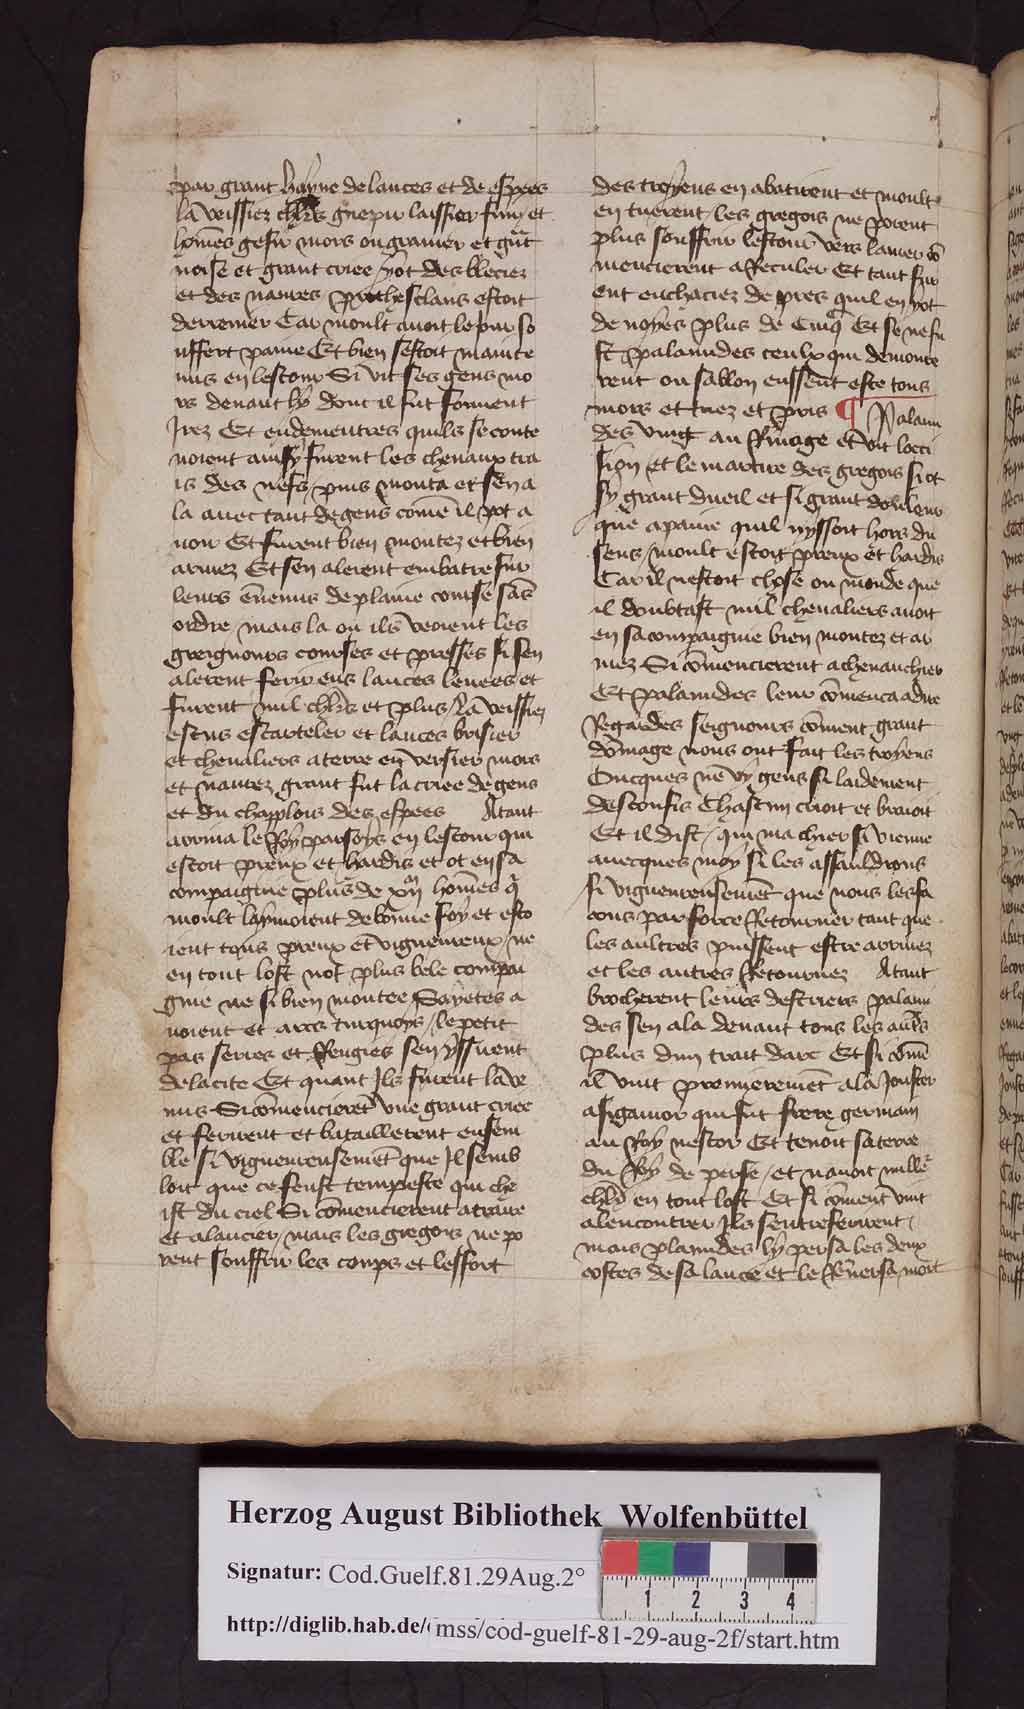 par grant hayne de lances et de espees
la veissiez chlrs guepir laissier fuir et
homes gesir mors ou grauier et gnt
noise et grant criee y ot des bleciez
et des naurez prothesclaus estoit
derrenier Car moult auoit le jour so
uffert paine Et bien sestoit mainte
nus en lestour Si vit ses gens mo
rs deuant ly dont il fut forment
Irez Et endementres quils se conte
noient ainsy furent les cheuaux tra
is des nefs puis monta et sen a
la auec tant de gens come il pot a
uoir Et furent bien montez et bien
armez Et sen alerent embatre sur
leurs enemis de plaine course sans
ordre mais la ou ils veoient les
greigneurs courses et presses si sen
alerent ferir eus lances leuees et
furent mil chlrs et plus La veissiez
escus escarteler et lances brisier
et cheualiers a terre en verser mors
et naurez grant fut la criee de gens
et du chapplois des espees Atant
arriua le Roy parsoys en lestour qui
estoit preux et hardis et ot en sa
compaignie plus de homes q
moult laymoient de bonne foy et esto
ient tous preux et viguereux ne
en tout lost not plus bele compai
gnie ne si bien montee Sayetes a
uoient et arcs turquoys le petit
pas series et Rengies sen yssirent
de la cite Et quant Ils furent la ve
nus Si comencieret vne grant criee
et ferirent et bataillerent ensem
ble si vigueureusemet que Il semb
loit que ce feust tempeste qui che
ist du ciel Si comencierent a traire
et a lancier mais les gregois ne po
rent souffrir les coups et leffort
des troyens en abatirent et moult
en tuerent les gregois ne porent
plus souffrir lestour vers la mer co
mencierent a Reculer Et tant fur
ent enchaciez de pres quil en y ot
de noyes plus de Cinq Et se ne fu
st palamides ceulx qui demoure
rent ou sablon eussent este tous
mors et tuez et pris ¶ Palam
des vint au Riuage et vit locci
sion et le martire des gregois si ot
sy grant dueil et si grant douleur
que a paine quil nyssoit hors du
sens moult estoit preux et hardis
Car il nestoit chose ou monde que
il doubtast mil cheualiers auoit
en sa compaignie bien montez et ar
mez Si comencierent a cheuauchier
Et palamides leur comenca a dire
Regardes seigneurs coment grant
domage nous ont fait les troyens
Oncques ne vy gens si laidement
desconfis Chascun crioit et braioit
Et il dist qui ma chier si vienne
auecques moy si les assauldrons
si vigueureusemet que nous les fe
rons par force Retourner tant que
les aultres puissent estre arriuez
et les autres Retournez Atant
brocherent leurs destriers palami
des sen ala deuant tous les autres
plus dun trait darc Et si come
il vint premierement a la Jouster
a sigamor qui fut frere germain
au Roy nestor Et tenoit sa terre
du Roy de perse et nauoit mille
chlr en tout lost Et si coment vint
a lencontrer Ils sentreferirent
mais plamides ly persa les deux
costes de sa lance et le Renersa mort
Herzog August Bibliothek Wolfenbüttel
Signatur: Cod.Guelf.81.29Aug.2°
http://diglib.hab.de/ mss/cod-guelf-81-29-aug-2f/start.htm
1 2 3 4